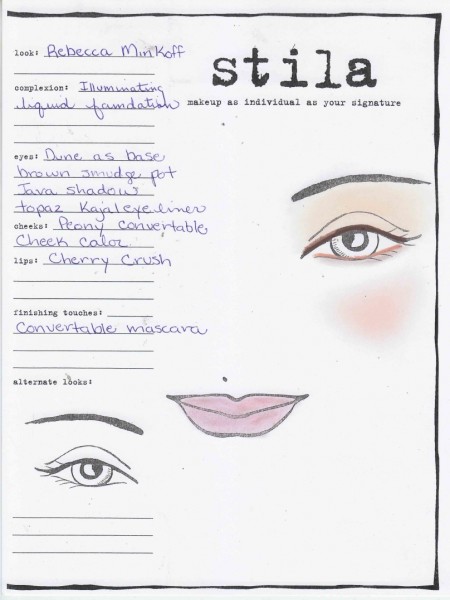 look: Rebecca Minkoff
stila
makeup as individual as your signature
complexion: Illuminating
liquid foundation
eyes: Dune as base
brown smudge pot
Java shadow
topaz Kajal eye liner
cheeks: Peony convertable
Cheek Color
lips: Cherry Crush
finishing touches:
Convertable mascara
alternate looks: